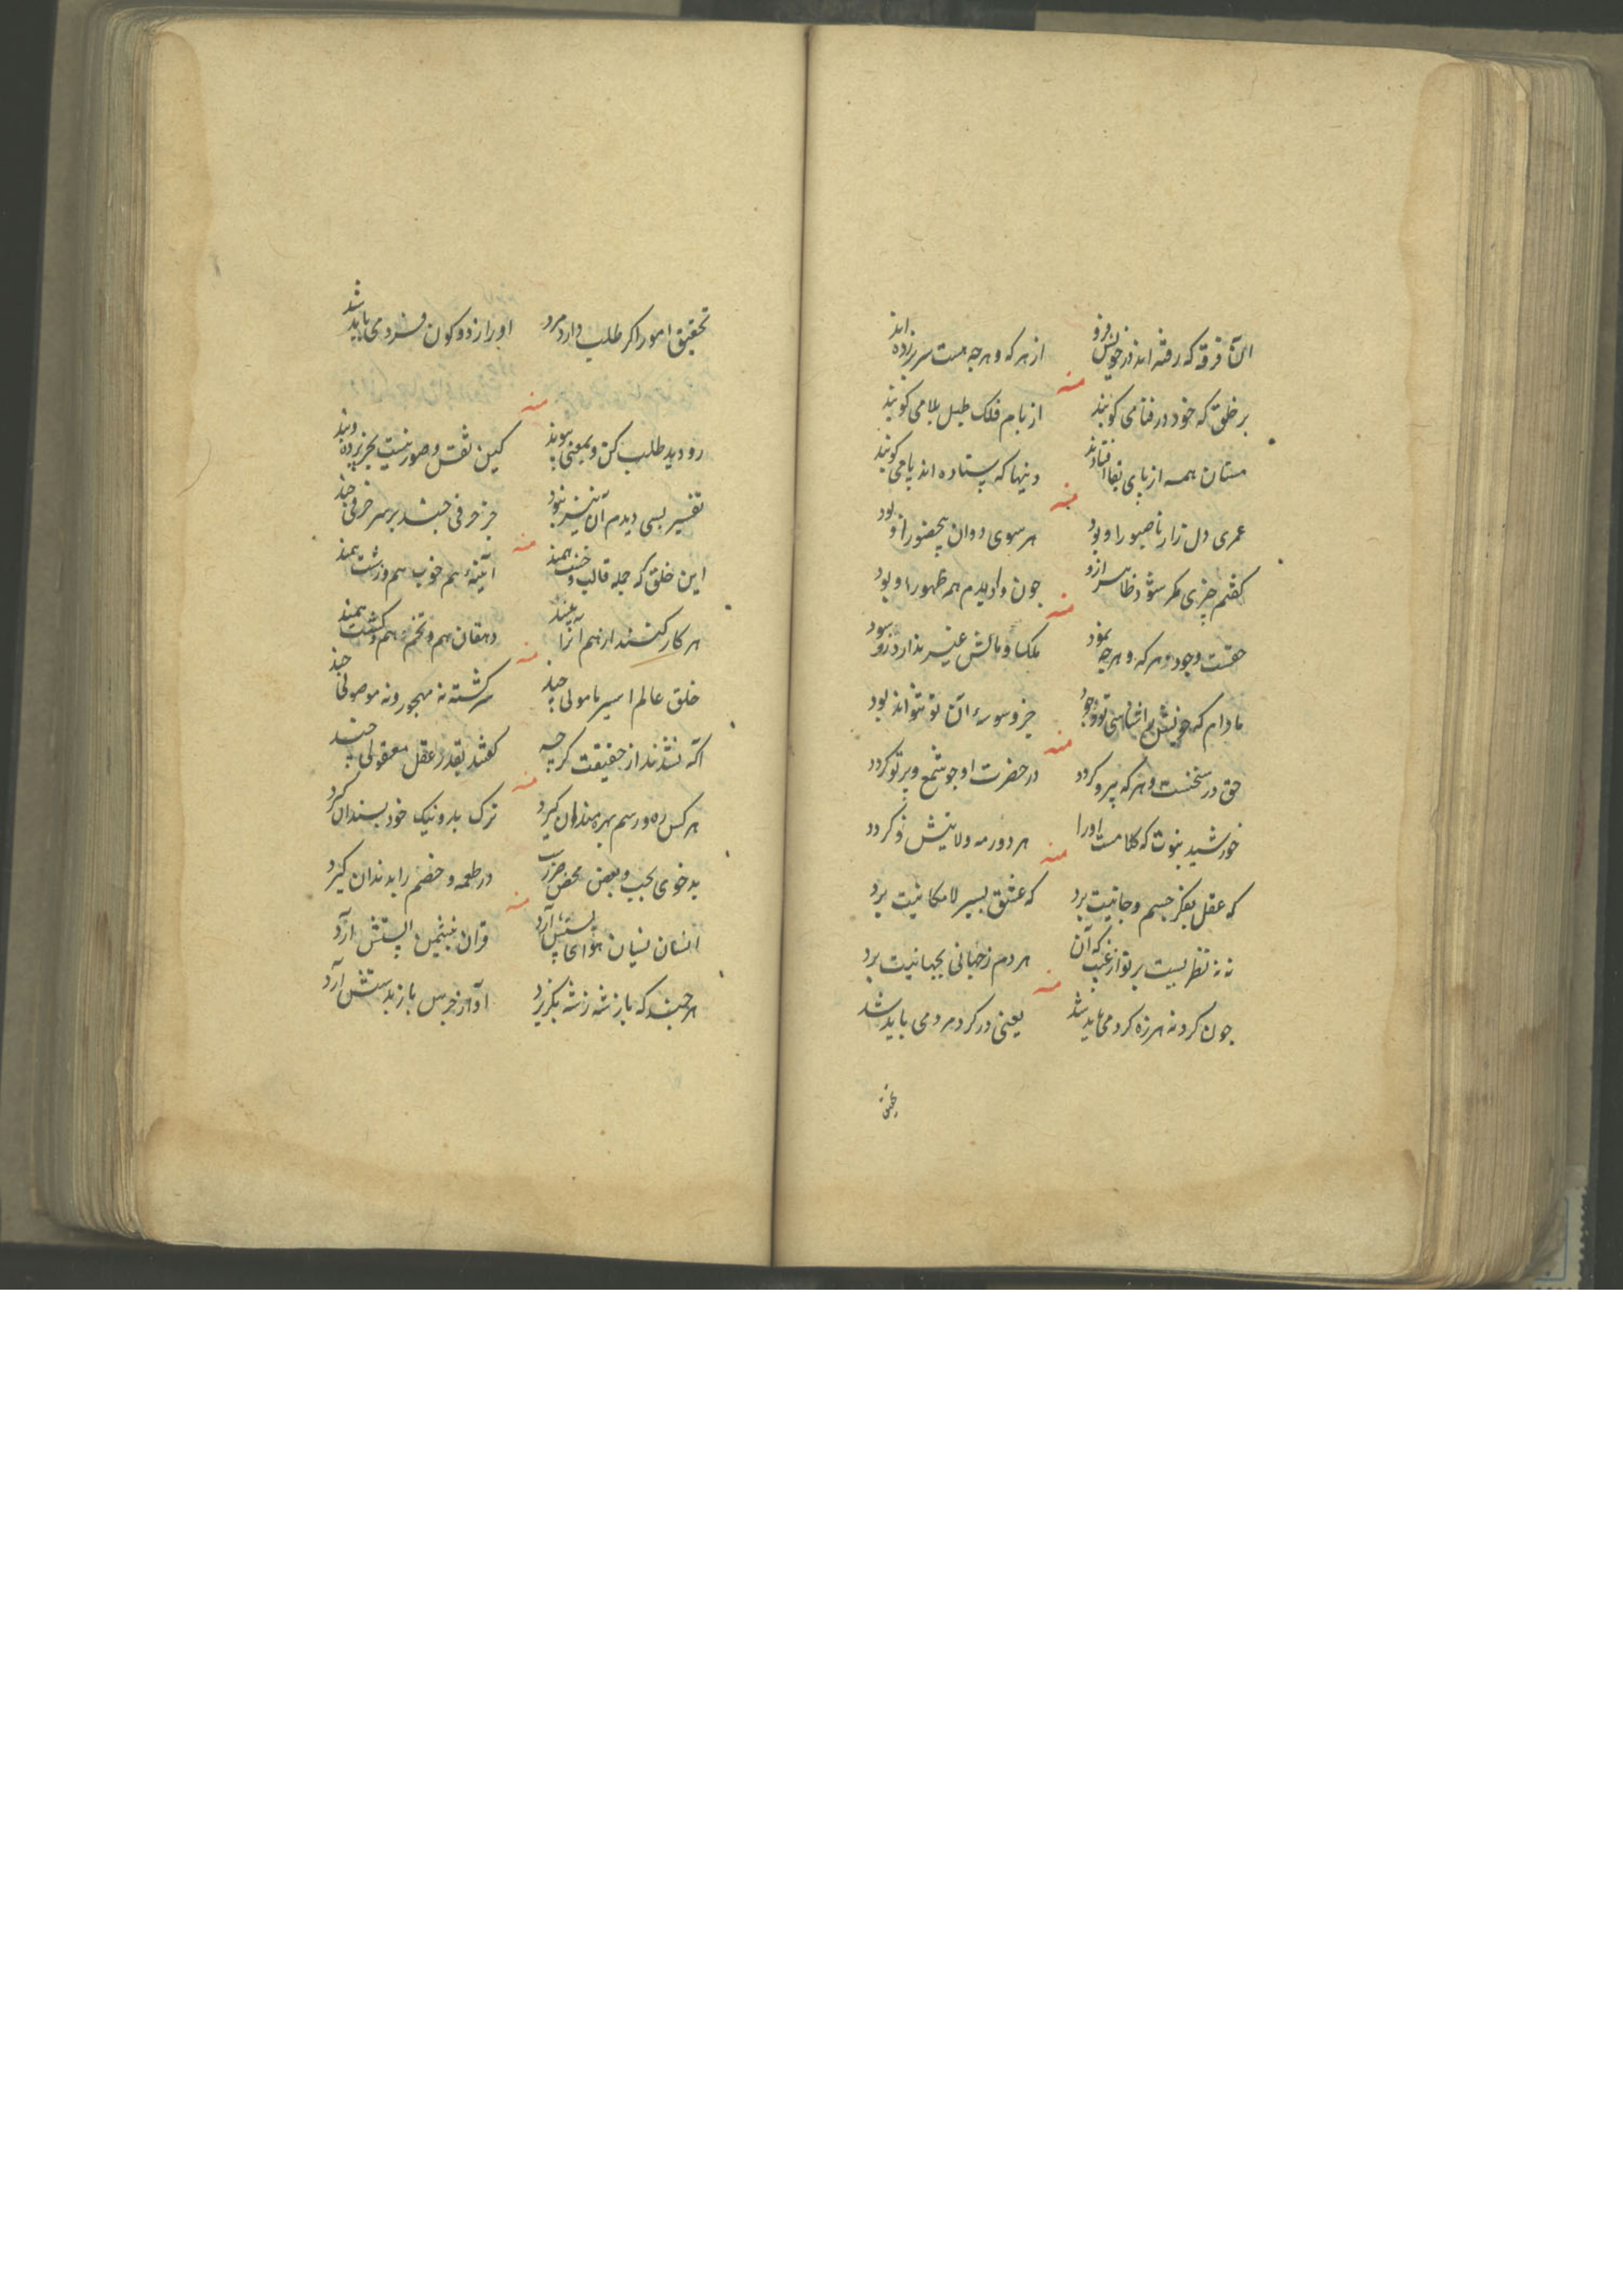 آن فرقه که رفته اند در خویش فرو از هر که و هرچه هست سر برزده اند
منه
بر خلق که خود در فنا می کوبند از بام فلک طبل بلا می کوبند
مستان همه از پای بقا افتادند وینها که ستاده اند پا می کوبند
منه
عمری دل زار ناصبور او بود هر سوی دوان بی حضور او بود
گفتم چیزی مگر شود ظاهر ازو چون وا دیدم همه ظهور او بود
منه
حقست وجود و هر که و هرچه نمود ملک و مالش غیر ندارد زو سود
مادام که خویش را شناسی تو وجود جز وسوسه آن تو نتواند بود
منه
حق در سخنست و هر که پیرو گردد در حضرت او چو شمع و پرتو گردد
خورشید نبوت که کلامست او را هر دور مه ولایتش نو گردد
منه
که عقل بفکر جسم و جانیت برد که عشق بسیر لامکانیت برد
نه نه نظریست بر تو از غیب که آن هر دم ز جهانی بجهانیت برد
منه
چون گرد نه هرزه گرد می باید شد یعنی در گرد مرد می باید شد
تحقیق
تحقیق امور اگر طلب دارد مرد او را ز دو کون فرد می باید شد
منه
رو دید طلب کن و بمعنی پیوند کین نقش و صور نیست بجز پرده و بند
تفسیر بسی دیدم آن نیز نبود جز حرفی چند بر سر حرفی چند
منه
این خلق که جمله قالب و خشت همند آیینه هم خوب هم و زشت همند
هر کار کنند از هم آنرا دهقان هم و تخم هم و کشت همند
منه
خلق عالم اسیر نامولی چند سرگشته نه مهجور و نه موصولی چند
آگه نشدند از حقیقت گرچه گفتند بقدر عقل معقولی چند
منه
هر کس ره و رسم بهره مندان گیرد ترک بد و نیک خود پسندان گیرد
در طعمه و خصم را بدندان گیرد
منه
انسان نسیان هوای پستش آرد قرآن الستش آرد
هرچند که باز شه ز شه بگریزد آواز جرس باز بدستش آرد